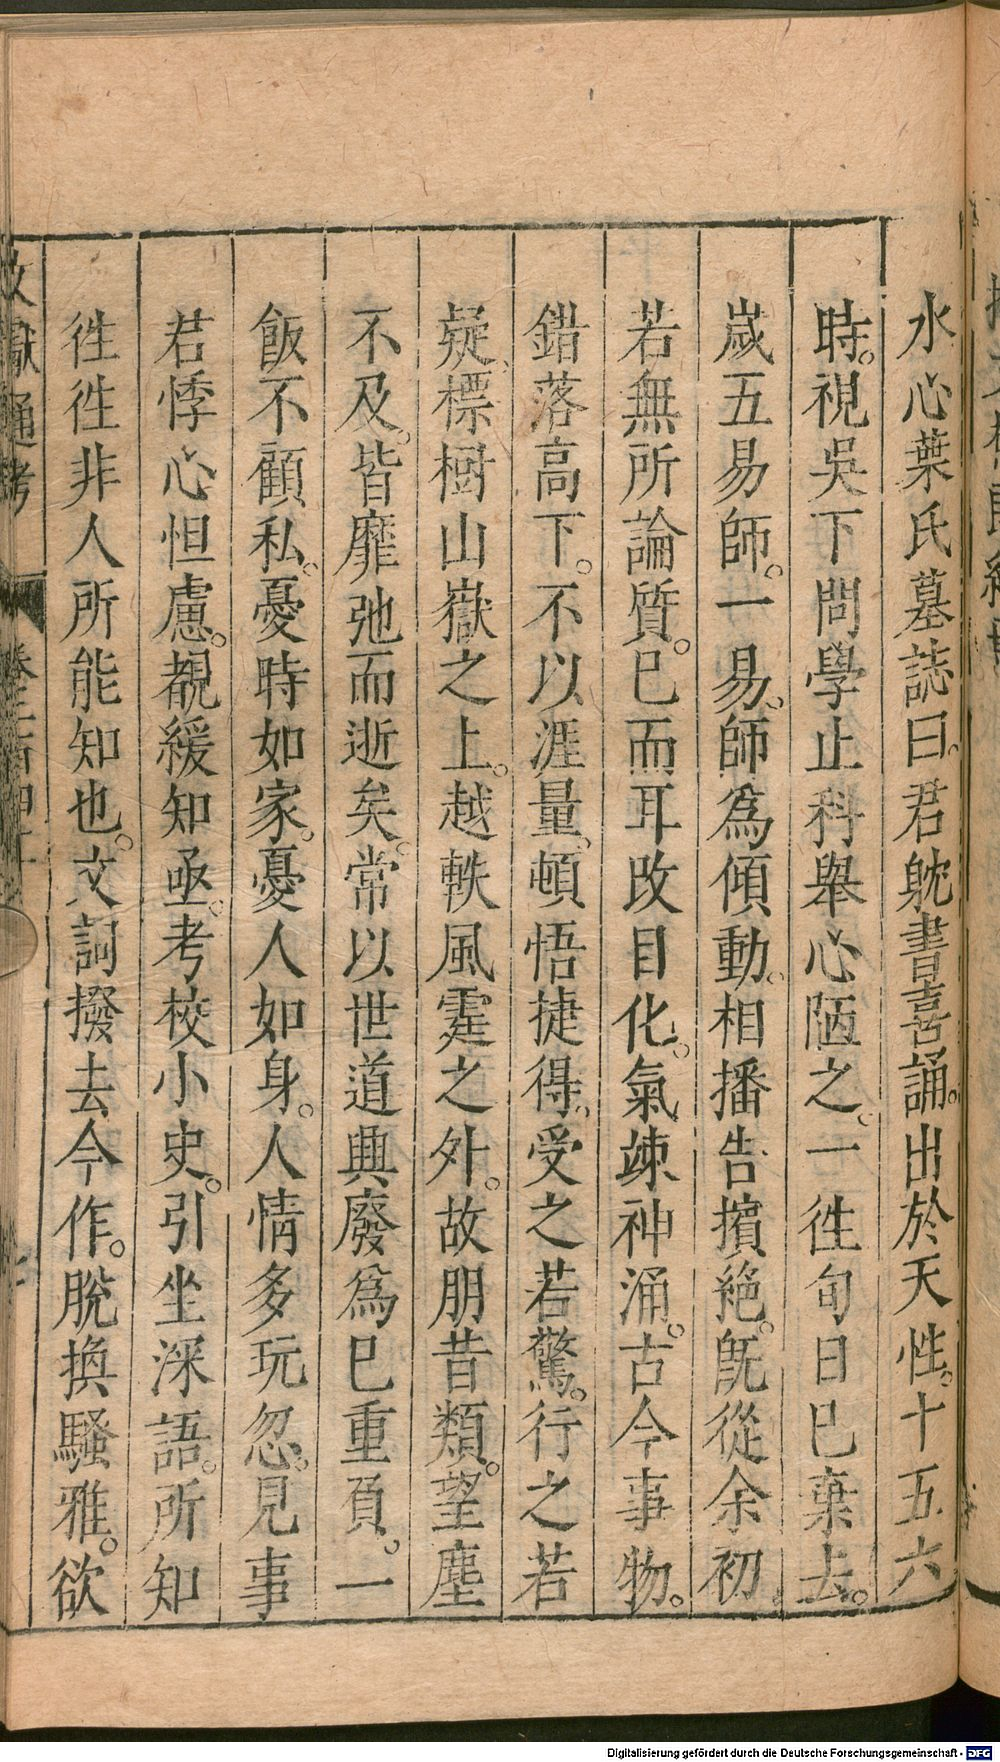 水心葉氏墓誌曰君躭書喜誦出於天性十五六
時視吳下問學止科舉心陋之一徃旬日已棄去
嵗五易師一易師爲傾動相播告擯絕既從余初
若無所論質已而耳改目化氣竦神涌古今事物
錯落高下不以涯量頓悟捷得受之若驚行之若
疑標樹山嶽之上越軼風霆之外故朋昔類望塵
不及皆靡弛而逝矣常以世道興廢爲已重負一
飯不顧私憂時如家憂人如身人情多玩忽見事
若悸心怛慮覩緩知亟考校小史引坐深語所知
徃徃非人所能知也文詞撥去今作脫換騷雅欲
文獻通考
Digitalisierung gefördert durch die Deutsche Forschungsgemeinschaft - DFG